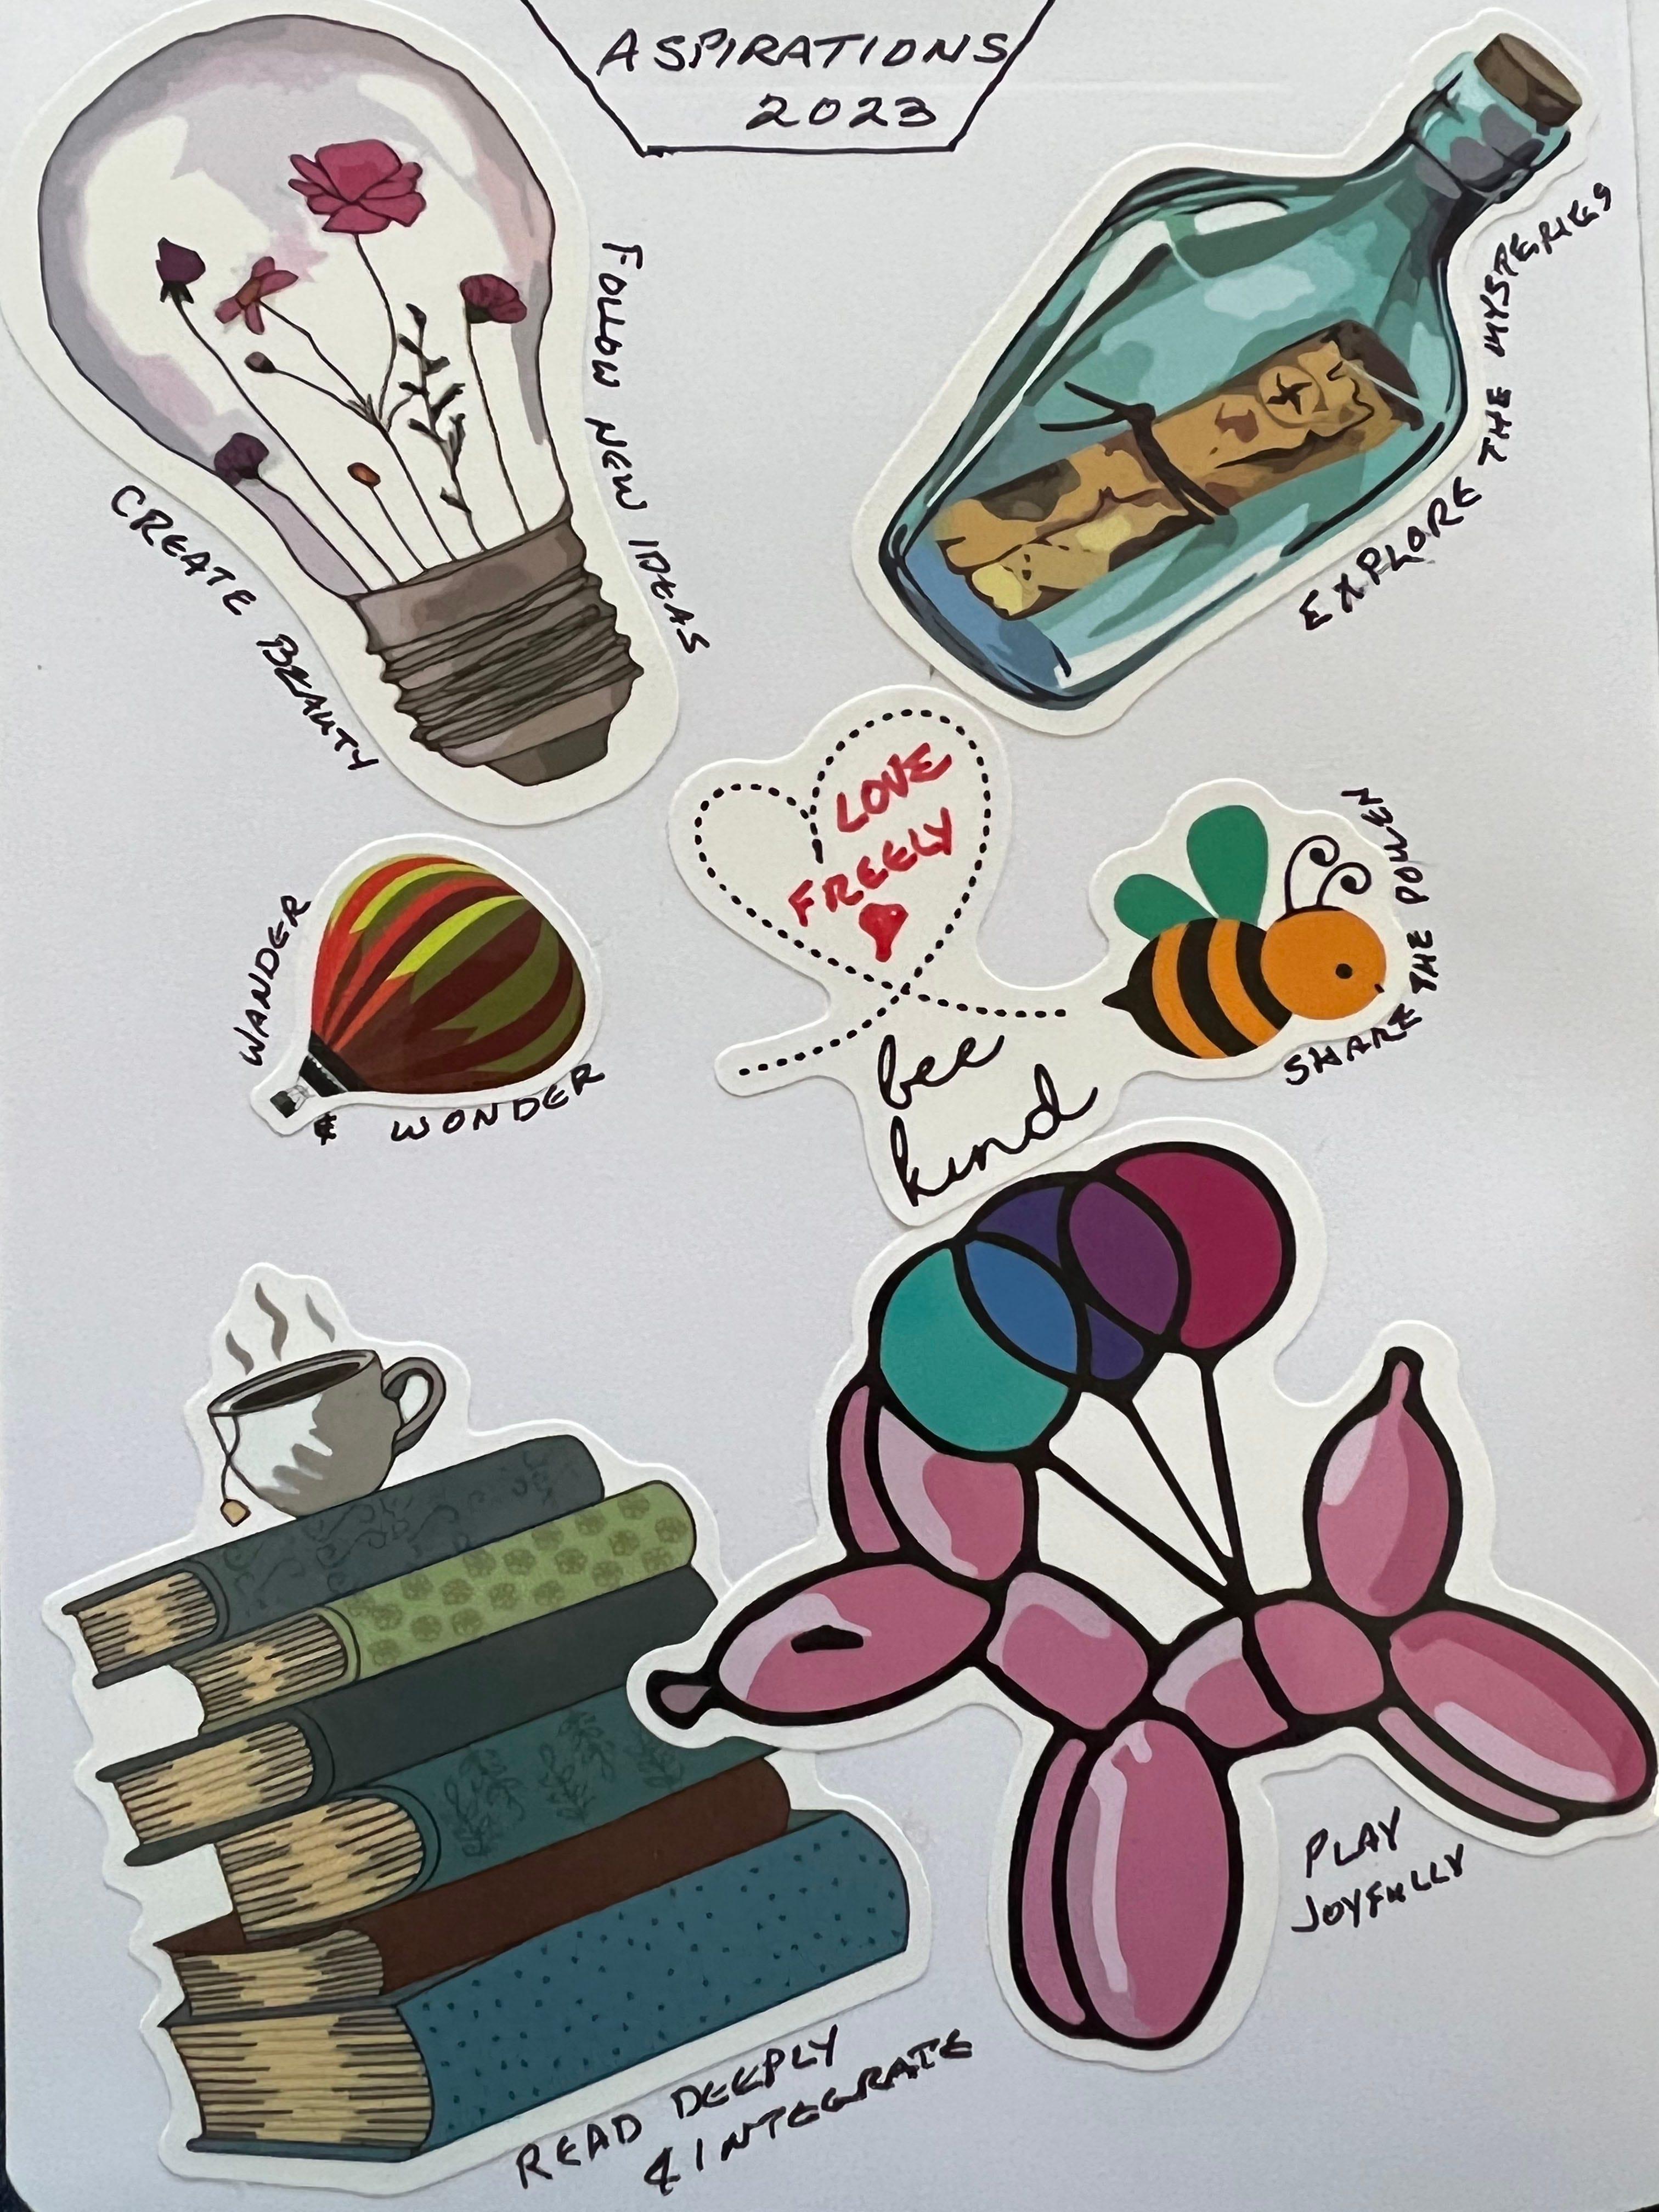 ASPIRATIONS
2023
CREATE BEAUTY
FOLLOW NEW IDEAS
EXPLORE THE MYSTERIES
LOVE
FREELY
bee
kind
SHARE THE POLLEN
WANDER
& WONDER
READ DEEPLY
& INTEGRATE
PLAY
JOYFULLY